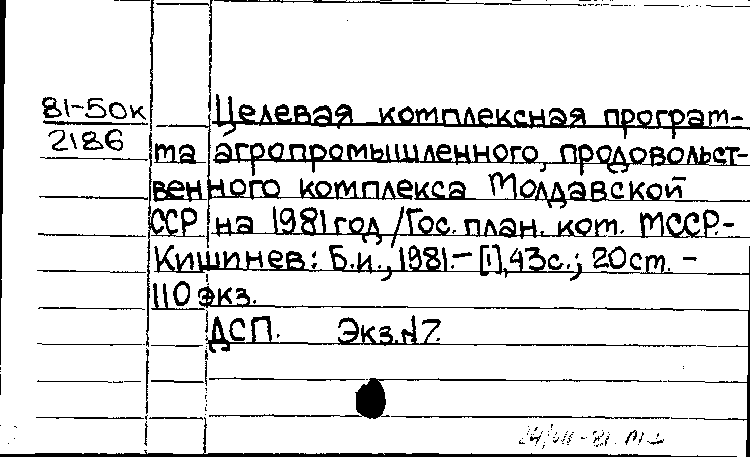 81-50к
2186
Целевая комплексная програм-
ма агропромышленного, продовольст-
венного комплекса Молдавской
ССР на 1981 год /Гос. план. ком. МССР.-
Кишинев: Б.и., 1981.- [1], 43с.; 20см. -
110 экз.
ДСП. Экз.N7.